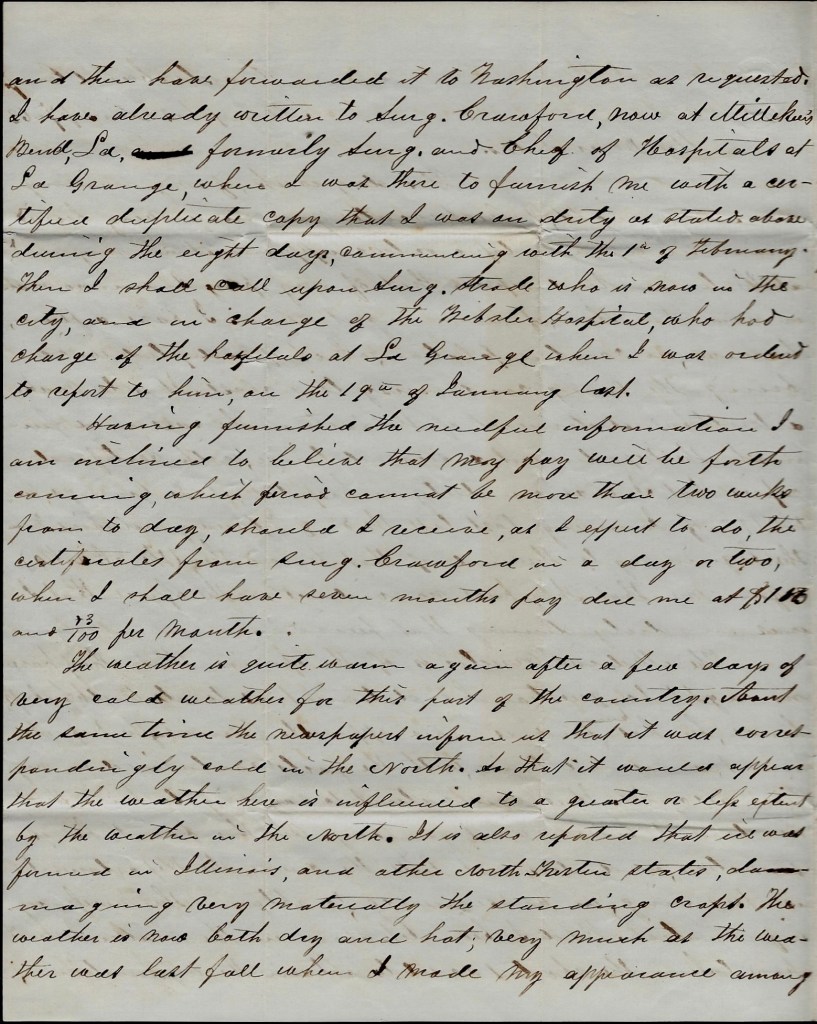 and then have forwarded it to Washington as requested.
I have already written to Surg. Crawford, now at Milleken's
Bend, La, formerly Surg. and Chef of Hospitals at
La Grange, when I was there to furnish me with a cer-
tified duplicate copy that I was on duty as stated above
during the eight days, commencing with the 1st of February.
Then I shall call upon Surg. who is now in the
city, and in charge of the Webster Hospital, who had
charge of the hospitals at La Grange when I was ordered
to report to him, on the 19th of January last.
Having furnished the needful information I
am inclined to believe that my pay will be forth
coming, which period cannot be more than two weeks
from to day, should I receive, as I expect to do, the
certificates from Surg. Crawford in a day or two,
when I shall have seven months pay due me at
and 83/100 per month.
The weather is quite warm again after a few days of
very cold weather for this part of the country. About
the same time the newspapers inform us that it was corres-
pondingly cold in the North. So that it would appear
that the weather here is influenced to a greater or less extent
by the weather in the North. It is also reported that ice was
formed in Illinois, and other North Western states, dam-
maging very materially the standing crops. The
weather is now both dry and hot; very much as the wea-
ther was last fall when I made my appearance among